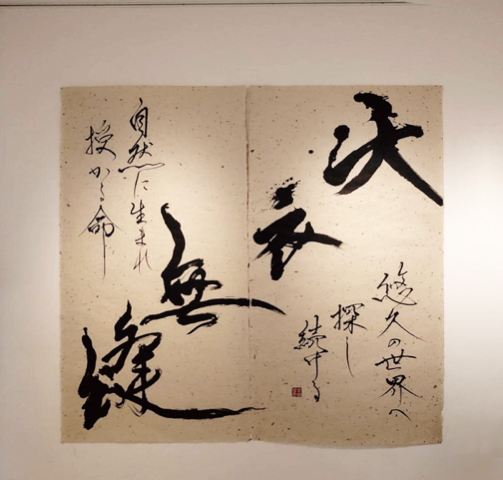 天衣無縫
悠久の世界へ
探し
続ける
自然に生まれ
授かる命